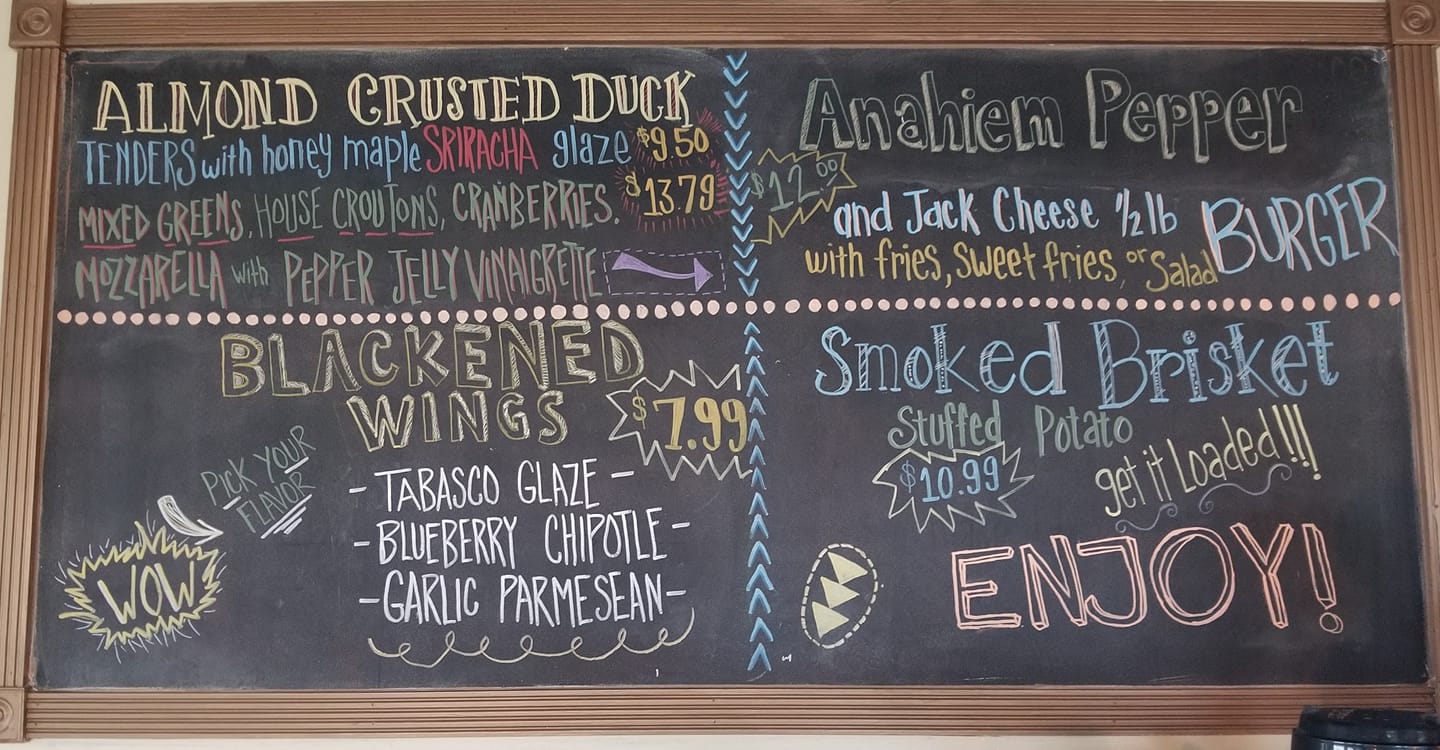 ALMOND CRUSTED DUCK
TENDERS with honey maple SRIRACHA glaze $9.50
$13.79
MIXED GREENS, HOUSE CROUTONS, CRANBERRIES.
MOZZARELLA with PEPPER JELLY VINAIGRETTE
Anahiem Pepper
$12.00
and Jack Cheese 1/2 lb BURGER
with fries, sweet fries, or Salad
BLACKENED
WINGS
$7.99
PICK YOUR
FLAVOR
- TABASCO GLAZE -
- BLUEBERRY CHIPOTLE -
- GARLIC PARMESEAN -
WOW
Smoked Brisket
Stuffed Potato
$10.99
get it Loaded!!!
ENJOY!